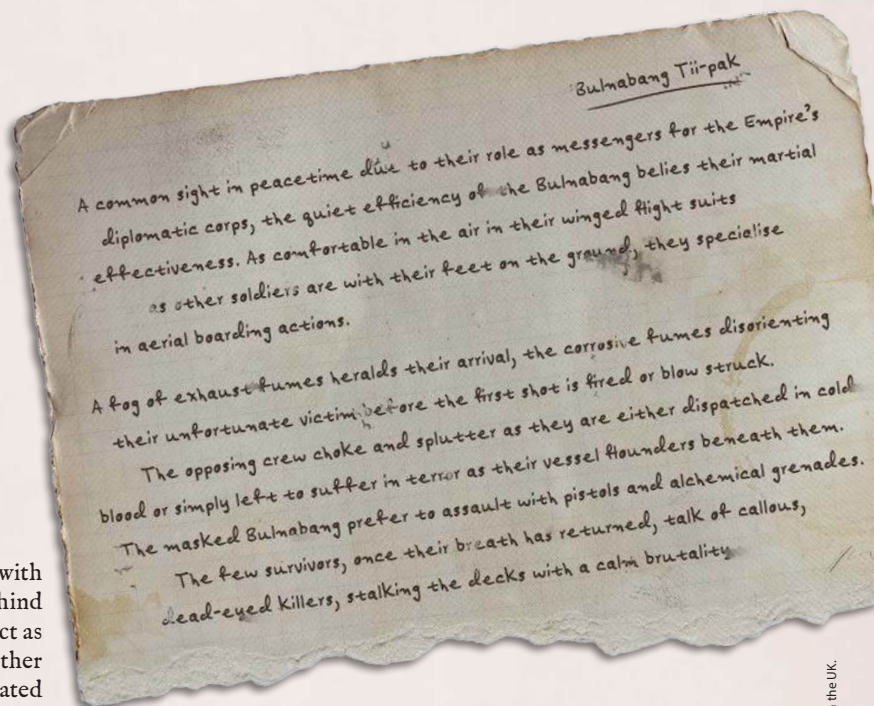 Bulnabang Tii-pak
A common sight in peacetime due to their role as messengers for the Empire's
diplomatic corps, the quiet efficiency of the Bulnabang belies their martial
effectiveness. As comfortable in the air in their winged flight suits
as other soldiers are with their feet on the ground, they specialise
in aerial boarding actions.
A fog of exhaust fumes heralds their arrival, the corrosive fumes disorienting
their unfortunate victim before the first shot is fired or blow struck.
The opposing crew choke and splutter as they are either dispatched in cold
blood or simply left to suffer in terror as their vessel flounders beneath them.
The masked Bulnabang prefer to assault with pistols and alchemical grenades.
The few survivors, once their breath has returned, talk of callous,
dead-eyed killers, stalking the decks with a calm brutality
with
hind
ct as
ther
ated
the UK.